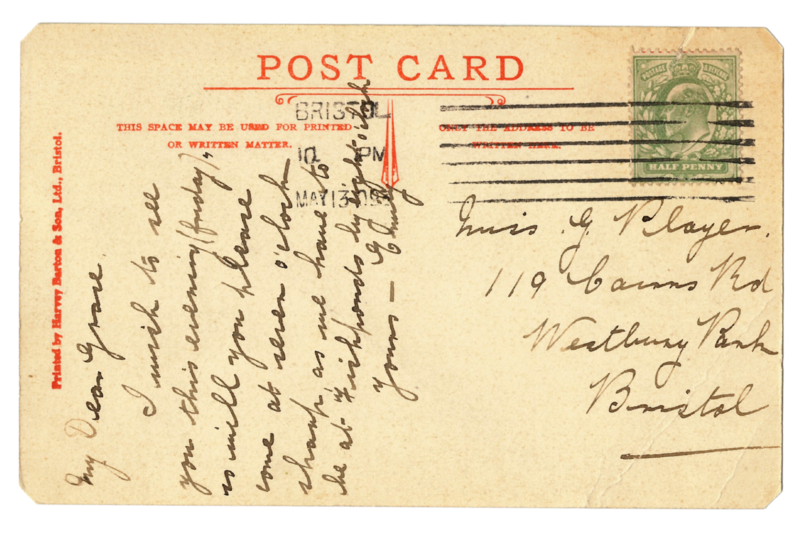 POST CARD
THIS SPACE MAY BE USED FOR PRINTED
OR WRITTEN MATTER.
ONLY THE ADDRESS TO BE
WRITTEN HERE.
BRISTOL
PM
MAY 13
HALF PENNY
Printed by Harvey Barton & Son, Ltd., Bristol.
My Dear Grace.
I wish to see
you this evening (friday),
so will you please
come at seven o'clock
sharp, as we have to
be at Fishponds by eight o'clock
Yours —
Miss. G Player.
119 Cairns Rd
Westbury Park
Bristol